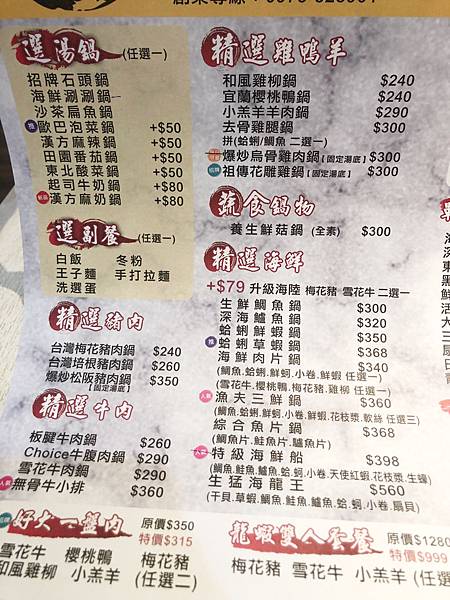 選湯鍋 (任選一)
招牌石頭鍋
海鮮涮涮鍋
沙茶扁魚鍋
推 歐巴泡菜鍋 +$50
漢方麻辣鍋 +$50
田園蕃茄鍋 +$50
東北酸菜鍋 +$50
起司牛奶鍋 +$80
漢方麻奶鍋 +$80
選副餐 (任選一)
白飯 冬粉
王子麵 手打拉麵
洗選蛋
精選豬肉
台灣梅花豬肉鍋 $240
台灣培根豬肉鍋 $260
爆炒松阪豬肉鍋 $350
【固定湯底】
精選牛肉
板腱牛肉鍋 $260
Choice牛腹肉鍋 $290
雪花牛肉鍋 $290
人氣 無骨牛小排 $360
精選雞鴨羊
和風雞柳鍋 $240
宜蘭櫻桃鴨鍋 $240
小羔羊羊肉鍋 $290
去骨雞腿鍋 $300
拼(蛤蜊/鯛魚 二選一)
爆炒烏骨雞肉鍋【固定湯底】$300
祖傳花雕雞鍋【固定湯底】$300
蔬食鍋物
養生鮮菇鍋 (全素) $300
精選海鮮
+$79 升級海陸 梅花豬 雪花牛 二選一
生鮮鯛魚鍋 $300
深海鱸魚鍋 $320
蛤蜊鮮蝦鍋 $350
推 蛤蜊草蝦鍋 $368
海鮮肉片鍋 $340
(鯛魚.蛤蜊.鮮蚵.小卷.鮮蝦 任選一)
(雪花牛.櫻桃鴨.梅花豬.雞柳 任選一)
人氣 漁夫三鮮鍋 $360
(鯛魚.蛤蜊.鮮蚵.小卷.鮮蝦.花枝漿.軟絲 任選三)
綜合魚片鍋 $368
(鯛魚片.鮭魚片.鱸魚片)
人氣 特級海鮮船 $398
(鯛魚.鮭魚.鱸魚.蛤.蚵.小卷.天使紅蝦.花枝漿.生蠔)
生猛海龍王 $560
(干貝.草蝦.鯛魚.鮭魚.鱸魚.蛤.蚵.小卷.扇貝)
好大一盤肉 原價$350
特價$315
雪花牛 櫻桃鴨 梅花豬
和風雞柳 小羔羊 (任選二)
龍蝦雙人套餐 原價$1280
特價$999
梅花豬 雪花牛 小羔羊 (任選